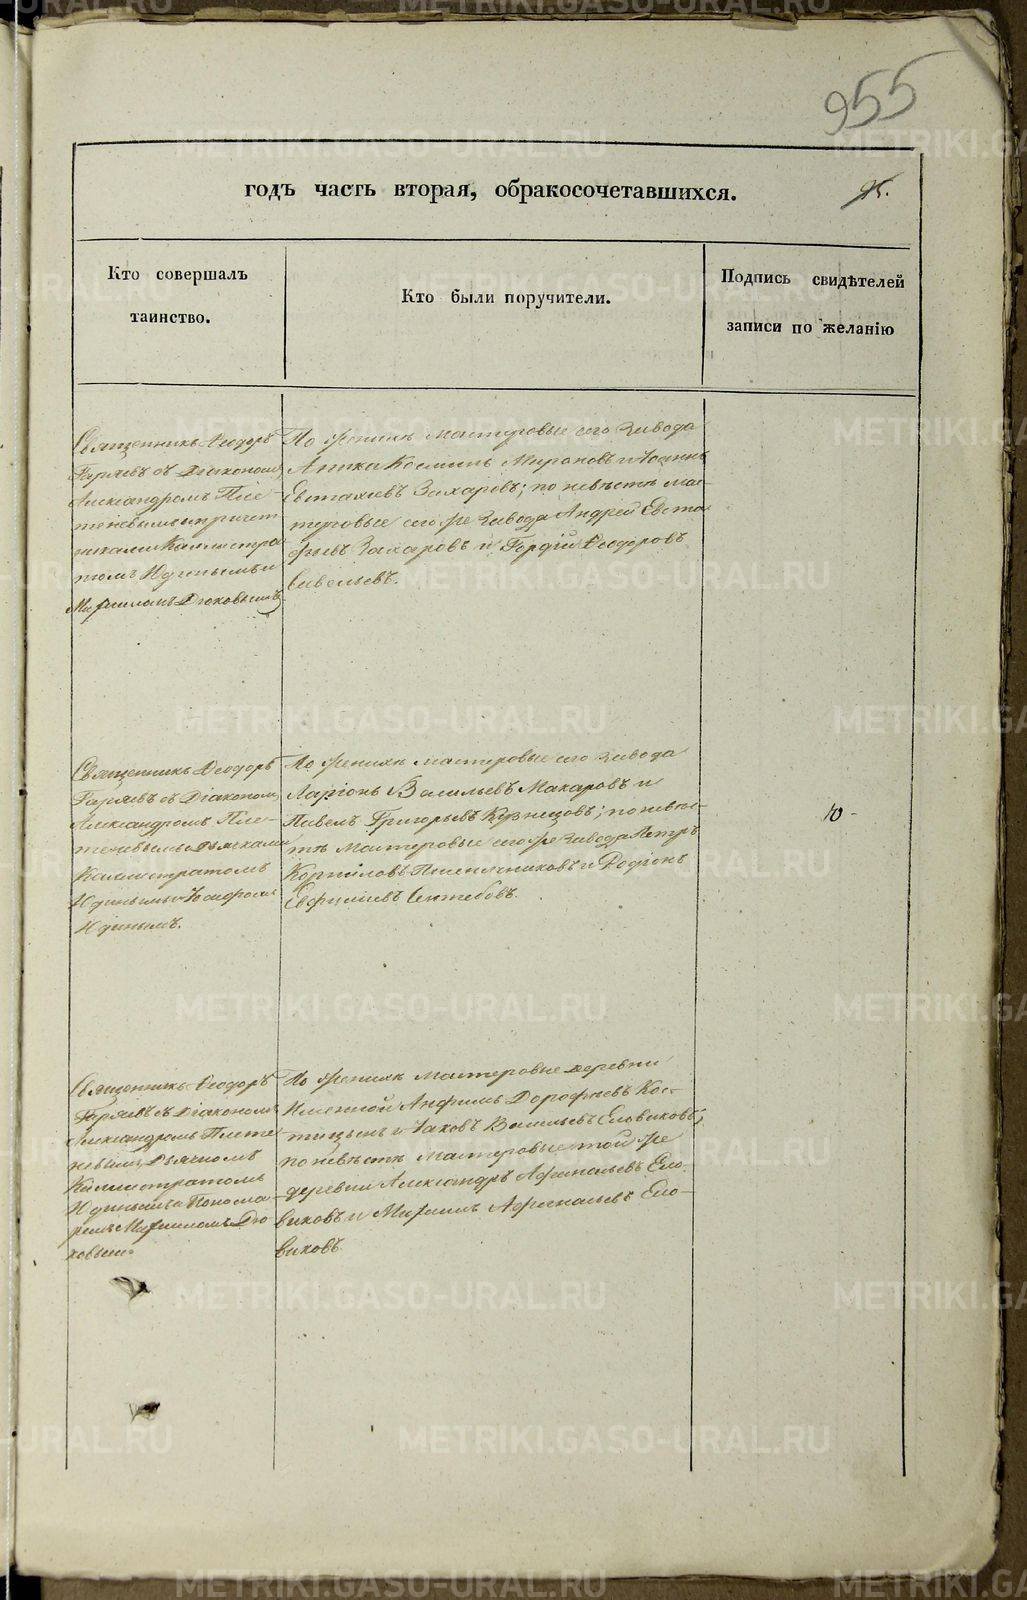 955
годъ часть вторая, обракосочетавшихся.
95.
Кто совершалъ
таинство.
Кто были поручители.
Подпись свидѣтелей
записи по желанію
Священникъ Ѳеодоръ
Гаряевъ съ Діакономъ
Александромъ Пле-
теневымъ и причет
никами Каллистра
томъ Юдинымъ и
Михаиломъ Дюковымъ
По женихѣ мастеровые сего завода
Козминъ Мироновъ и Іоаннъ
Евстафіевъ Захаровъ; по невѣстѣ ма-
теровые сего же завода Андрей Евста
фьевъ Захаровъ и Гордій Ѳеодоровъ
Савельевъ.
Священникъ Ѳеодоръ
Гаряевъ съ Діакономъ
Александромъ Пле-
теневымъ и Дьячками
Каллистратомъ
Юдинымъ и Іосифомъ
Юдинымъ.
По женихѣ мастеровые сего завода
Ларіонъ Васильевъ Макаровъ и
Павелъ Григорьевъ Кузнецовъ; по невѣс-
тѣ мастеровые сего же завода Петръ
Корниловъ Пшеничниковъ и Родіонъ
Евфиміевъ
10 -
Священникъ Ѳеодоръ
Гаряевъ съ Діакономъ
Александромъ Плете
невымъ, Дьячкомъ
Каллистратомъ
Юдинымъ и Понома-
ремъ Михаиломъ Дю
ковымъ
По женихѣ мастеровые деревни
Анфимъ Дорофѣевъ Кос-
тицынъ и Іаковъ Васильевъ Еловиковъ;
по невѣстѣ мастеровые той же
деревни Александръ Афанасьевъ Ело-
виковъ и Михаилъ Афанасьевъ Ело-
виковъ.
METRIKI.GASO-URAL.RU